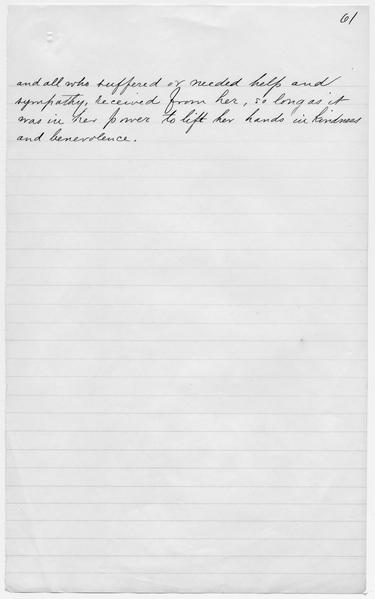 61
and all who suffered or needed help and
sympathy, received from her, so long as it
was in her power to lift her hands in kindness
and benevolence.